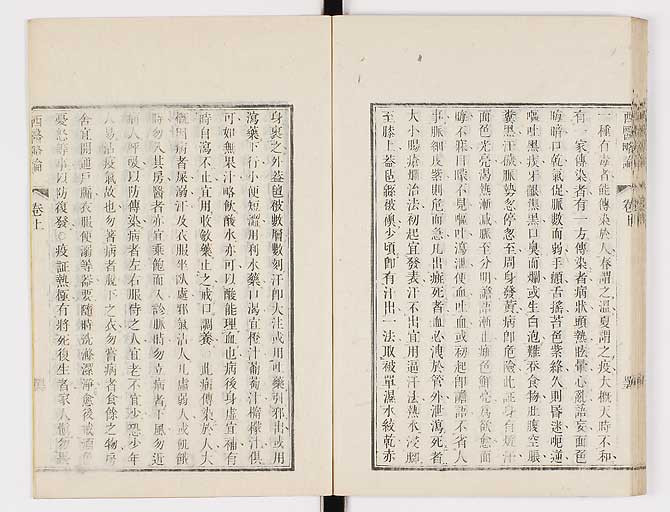 一種有毒者能傳染於人春謂之溫夏謂之疫大概天時不和
有一家傳染者有一方傳染者病狀頭熱眩暈心亂譫妄面色
晦暗口乾氣促脈數而弱手顫舌搖苔色紫絳久則昏迷呃逆
嘔吐黑痰牙齦焦黑口臭而爛或生白泡難吞食物此腹空脹
糞黑汗臭脈勢忽停忽至周身發黃病即危險此証身自發汗
面色光亮渴熱漸減脈至分明譫語漸止癍色鮮亮為欲愈面
晦不華目暗不見嘔吐瀉泄便血吐血或初起即譫語不省人
事脈細皮紫則危而急凡出癍死者血必洩於管外泄瀉死者
大小腸漸爛治法初起宜發表汗不出宜用逼汗法熱水浸腳
至膝上蓋氈絲被褥少頃即有汗出一法取被單濕水絞乾赤
身裹之外蓋氈被數層數刻汗即大注或用吐藥引邪出或用
瀉藥下行小便短澀用利水藥口渴宜橙汁葡萄汁檸檬汁俱
可如無果汁略飲酸水亦可以酸能理血也病後身虛宜補有
時自瀉不止宜用收斂藥止之戒口調養 此病傳染於人大
概因病者屎溺汗及衣服坐臥處邪氣沾人凡虛弱人或飢餓
時勿入其房醫者亦宜乘飽而入診脈時勿立病者下風勿近
病人呼吸以防傳染病者左右服侍之人宜老不宜少恐少年
人易沾疫氣故也勿著病者脫下之衣勿嘗病者食餘之物房
舍宜開通戶牖衣服便溺等器要隨時洗滌潔淨愈後戒煩勞
憂怒等事以防復發 疫証熱極有將死復生者家人慎勿
西醫略論
卷上